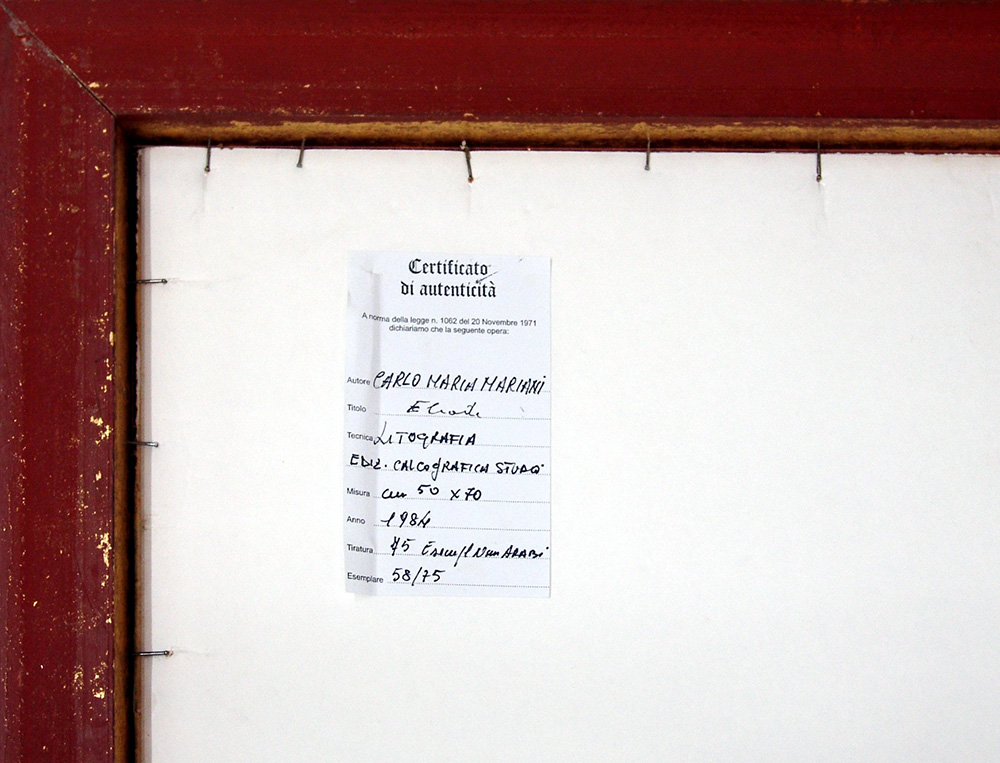 Certificato
di autenticità
A norma della legge n. 1062 del 20 Novembre 1971
dichiariamo che la seguente opera:
Autore CARLO MARIA MARIANI
Titolo
Tecnica LITOGRAFIA
EDIZ. CALCOGRAFICA STUDIO
Misura cm 50 x 70
Anno 1984
Tiratura 75 Esempl Num ARABI
Esemplare 58/75